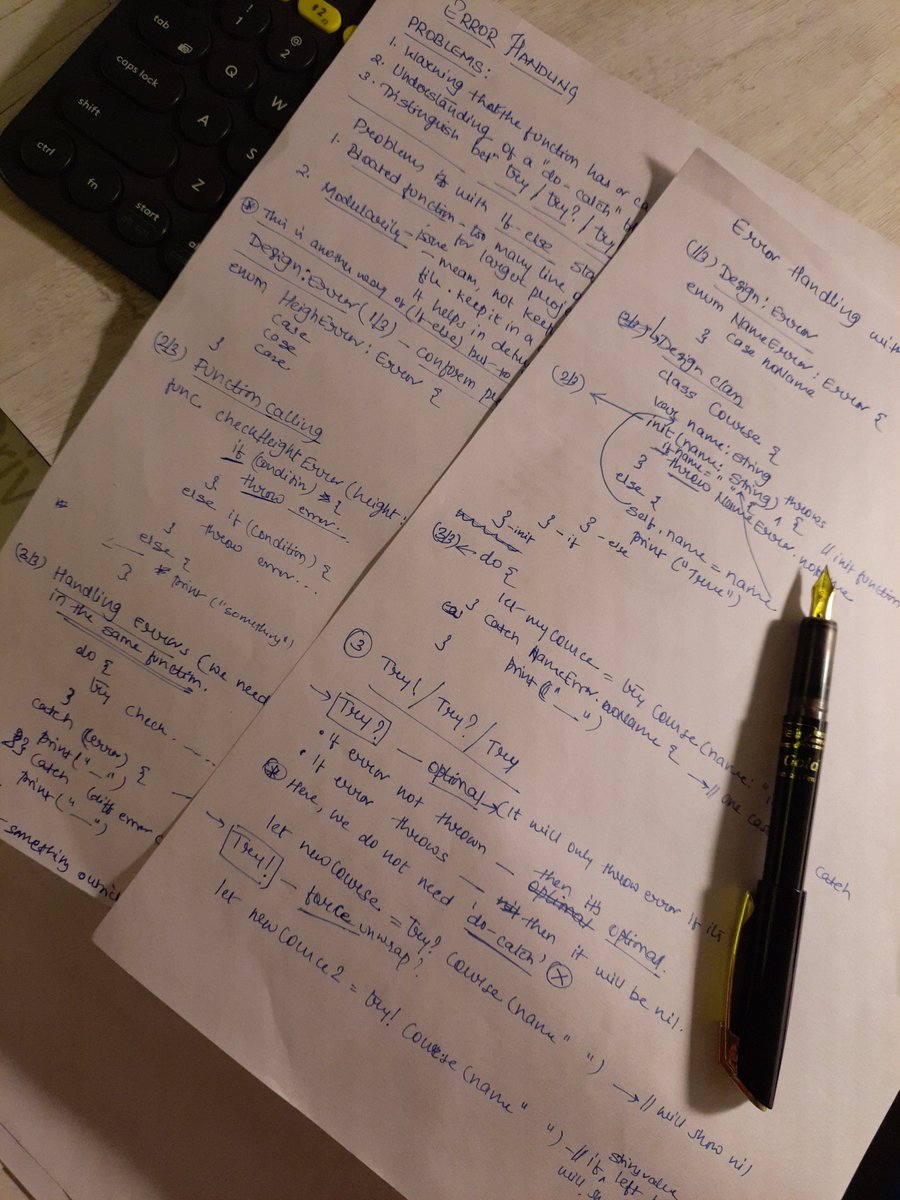 ERROR HANDLING
PROBLEMS:
1. Warning that the function has or
2. Understanding of a "do-catch"
3. Distinguish betn try / try? / try
Problems with If-else
1. Bloated function - too many line
2. Modularity - issue for larger
- mean, not keep
file. Keep it in a
* This is another way of (If-else) but
It helps in
Design: Error (1/3) - conform
enum HeighError: Error {
case
case
case
}
(2/3) Function calling
func checkHeightError (height:
if (condition) {
throw error...
}
else if (condition) {
throw error...
}
else {
print ("something")
}
(3/3) Handling errors (we need
in the same function.
do {
try check...
}
catch (error) {
print ("—")
}
catch (diff error
print ("—")
something
Error Handling with
(1/3) Design: Error
enum NameError: Error {
case noName
}
Design class
(2/3)
class Course {
var name: String
init (name: String) throws {
if name = "" {
throw NameError.noName
// init function
}
else {
self.name = name
print ("True")
} - else
} - if
} - init
(3/3) do {
let mycource = try Course (name: "
}
catch NameError.noName { → // one case
print ("—")
}
catch
3 Try! / Try? / Try
→ Try? — optional → (It will only throw error if its
• if error not thrown — then its optional.
• If error throws — then it will be nil.
* Here, we do not need 'do-catch' X
let newCourse = Try? Course (name " ") → // will show nil
→ Try! — force unwrap?
let newCource2 = try! Course (name " ") - // if left
string value
will
tab
caps lock
shift
ctrl
fn
start
!
1
@
2
Q
W
A
S
Z
Gold